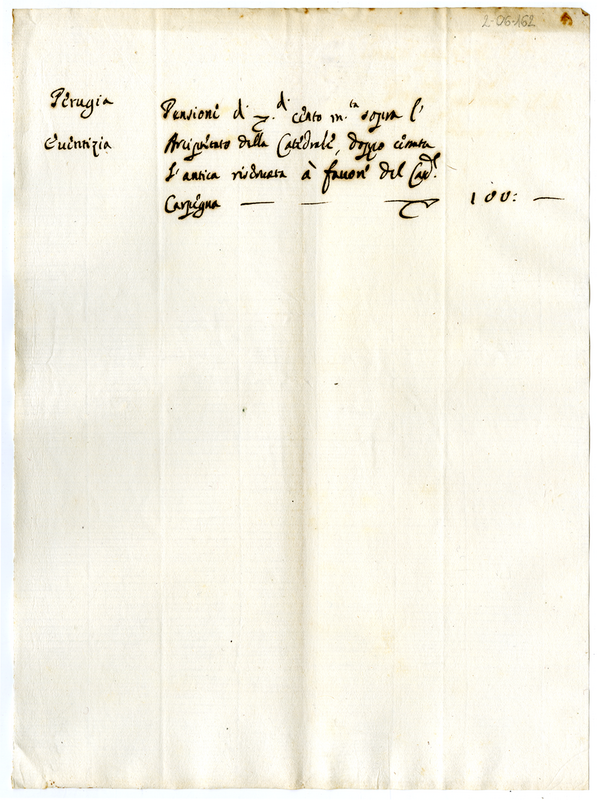 2-06-162
Perugia
Euentizia
Pensione di ▽.di cento m.ta sopra l'
Arcipretato della Catedrale, doppo cessata
l'antica riseruata à fauore del Card.l
Carpegna — — ▽ 100: —